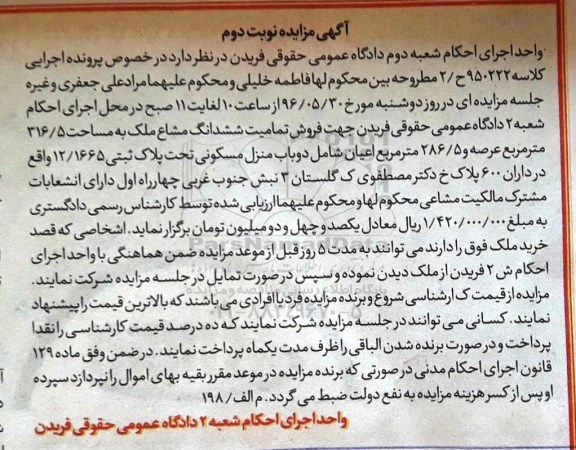 آگهی مزایده نوبت دوم
واحد اجرای احکام شعبه دوم دادگاه عمومی حقوقی فریدن در نظر دارد در خصوص پرونده اجرایی
کلاسه ۹۵۰۲۲۲ ح/۲ مطروحه بین محکوم لها فاطمه خلیلی و محکوم علیهما مرادعلی جعفری و غیره
جلسه مزایده ای در روز دوشنبه مورخ ۹۶/۰۵/۳۰ از ساعت ۱۰ لغایت ۱۱ صبح در محل اجرای احکام
شعبه ۲ دادگاه عمومی حقوقی فریدن جهت فروش تمامیت ششدانگ مشاع ملک به مساحت ۳۱۶/۵
مترمربع عرصه و ۲۸۶/۵ مترمربع اعیان شامل دو باب منزل مسکونی تحت پلاک ثبتی ۱۲/۱۶۶۵ واقع
در داران ۶۰۰ پلاک خ دکتر مصطفوی ک گلستان ۳ نبش جنوب غربی چهارراه اول دارای انشعابات
مشترک مالکیت مشاعی محکوم لها و محکوم علیهما ارزیابی شده توسط کارشناس رسمی دادگستری
به مبلغ ۱/۴۲۰/۰۰۰/۰۰۰ ریال معادل یکصد و چهل و دو میلیون تومان برگزار نماید. اشخاصی که قصد
خرید ملک فوق را دارند می توانند به مدت ۵ روز قبل از موعد مزایده ضمن هماهنگی با واحد اجرای
احکام ش ۲ فریدن از ملک دیدن نموده و سپس در صورت تمایل در جلسه مزایده شرکت نمایند.
مزایده از قیمت ک ارشناسی شروع و برنده مزایده فرد یا افرادی می باشند که بالاترین قیمت را پیشنهاد
نمایند. کسانی می توانند در جلسه مزایده شرکت نمایند که ده درصد قیمت کارشناسی را نقدا
پرداخت و در صورت برنده شدن الباقی را ظرف مدت یکماه پرداخت نمایند. در ضمن وفق ماده ۱۲۹
قانون اجرای احکام مدنی در صورتی که برنده مزایده در موعد مقرر بقیه بهای اموال را نپردازد سپرده
او پس از کسر هزینه مزایده به نفع دولت ضبط می گردد. م الف/ ۱۹۸
واحد اجرای احکام شعبه ۲ دادگاه عمومی حقوقی فریدن
ParsNamadData